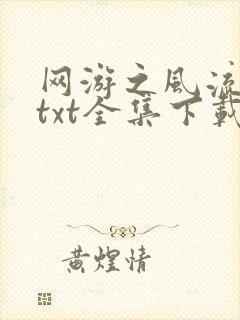 网游之风流
txt全集下载
黄煌情